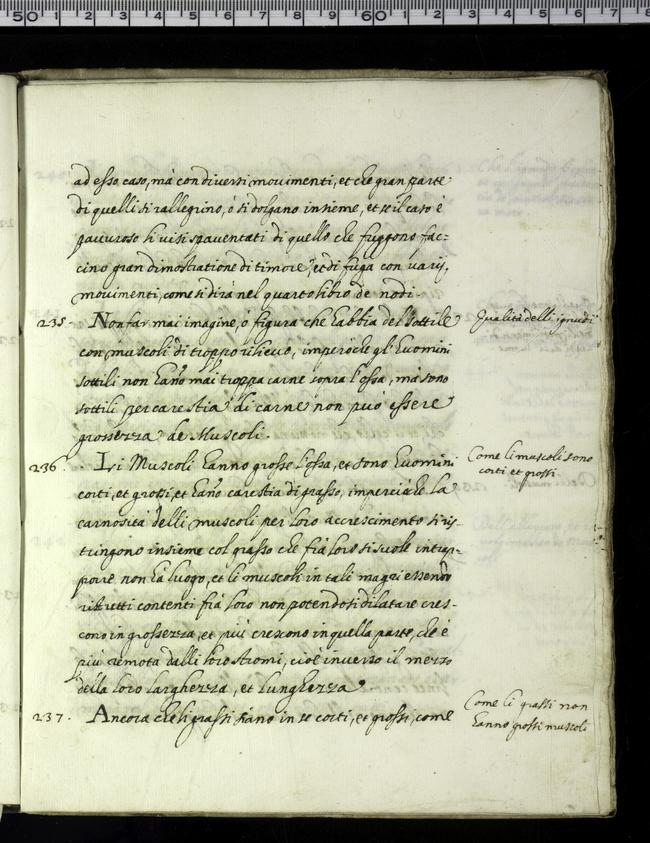 ad esso caso, mà con diversi movimenti, et che gran parte
di quelli si rallegrino, ò si dolgano insieme, et se il caso è
pauuroso li visi spaventati di quello che fuggono fac-
cino gran dimostratione di timore, et di fuga con varij,
movimenti, come si dirà nel quarto libro de nodi.
235. Non far mai imagine, ò figura che habbia del sottile Qualità delli ignudi
con muscoli di troppo rilievo, imperòche gl'huomini
sottili non hano mai troppa carne sopra l'ossa, mà sono
sottili per carestia di carne non può essere
grossezza de Muscoli.
236. Li Muscoli hanno grosse l'ossa, et sono huomini Come li muscoli sono
corti, et grossi, et hano carestia di grasso, imperciòche la corti et grossi
carnosità delli muscoli per loro accrescimento si ris-
tringono insieme col grasso che frà loro si suole intrap-
porre non hà luogo, et li muscoli in tali magri essendo
ristretti contenti frà loro non potendosi dilatare cres-
cono in grossezza, et più crescono in quella parte, che è
più remota dalli loro stromi, cioè inverso il mezzo
della loro larghezza, et lunghezza
237. Ancora che li grassi siano in se corti, et grossi, come Come li grassi non
hanno grossi muscoli